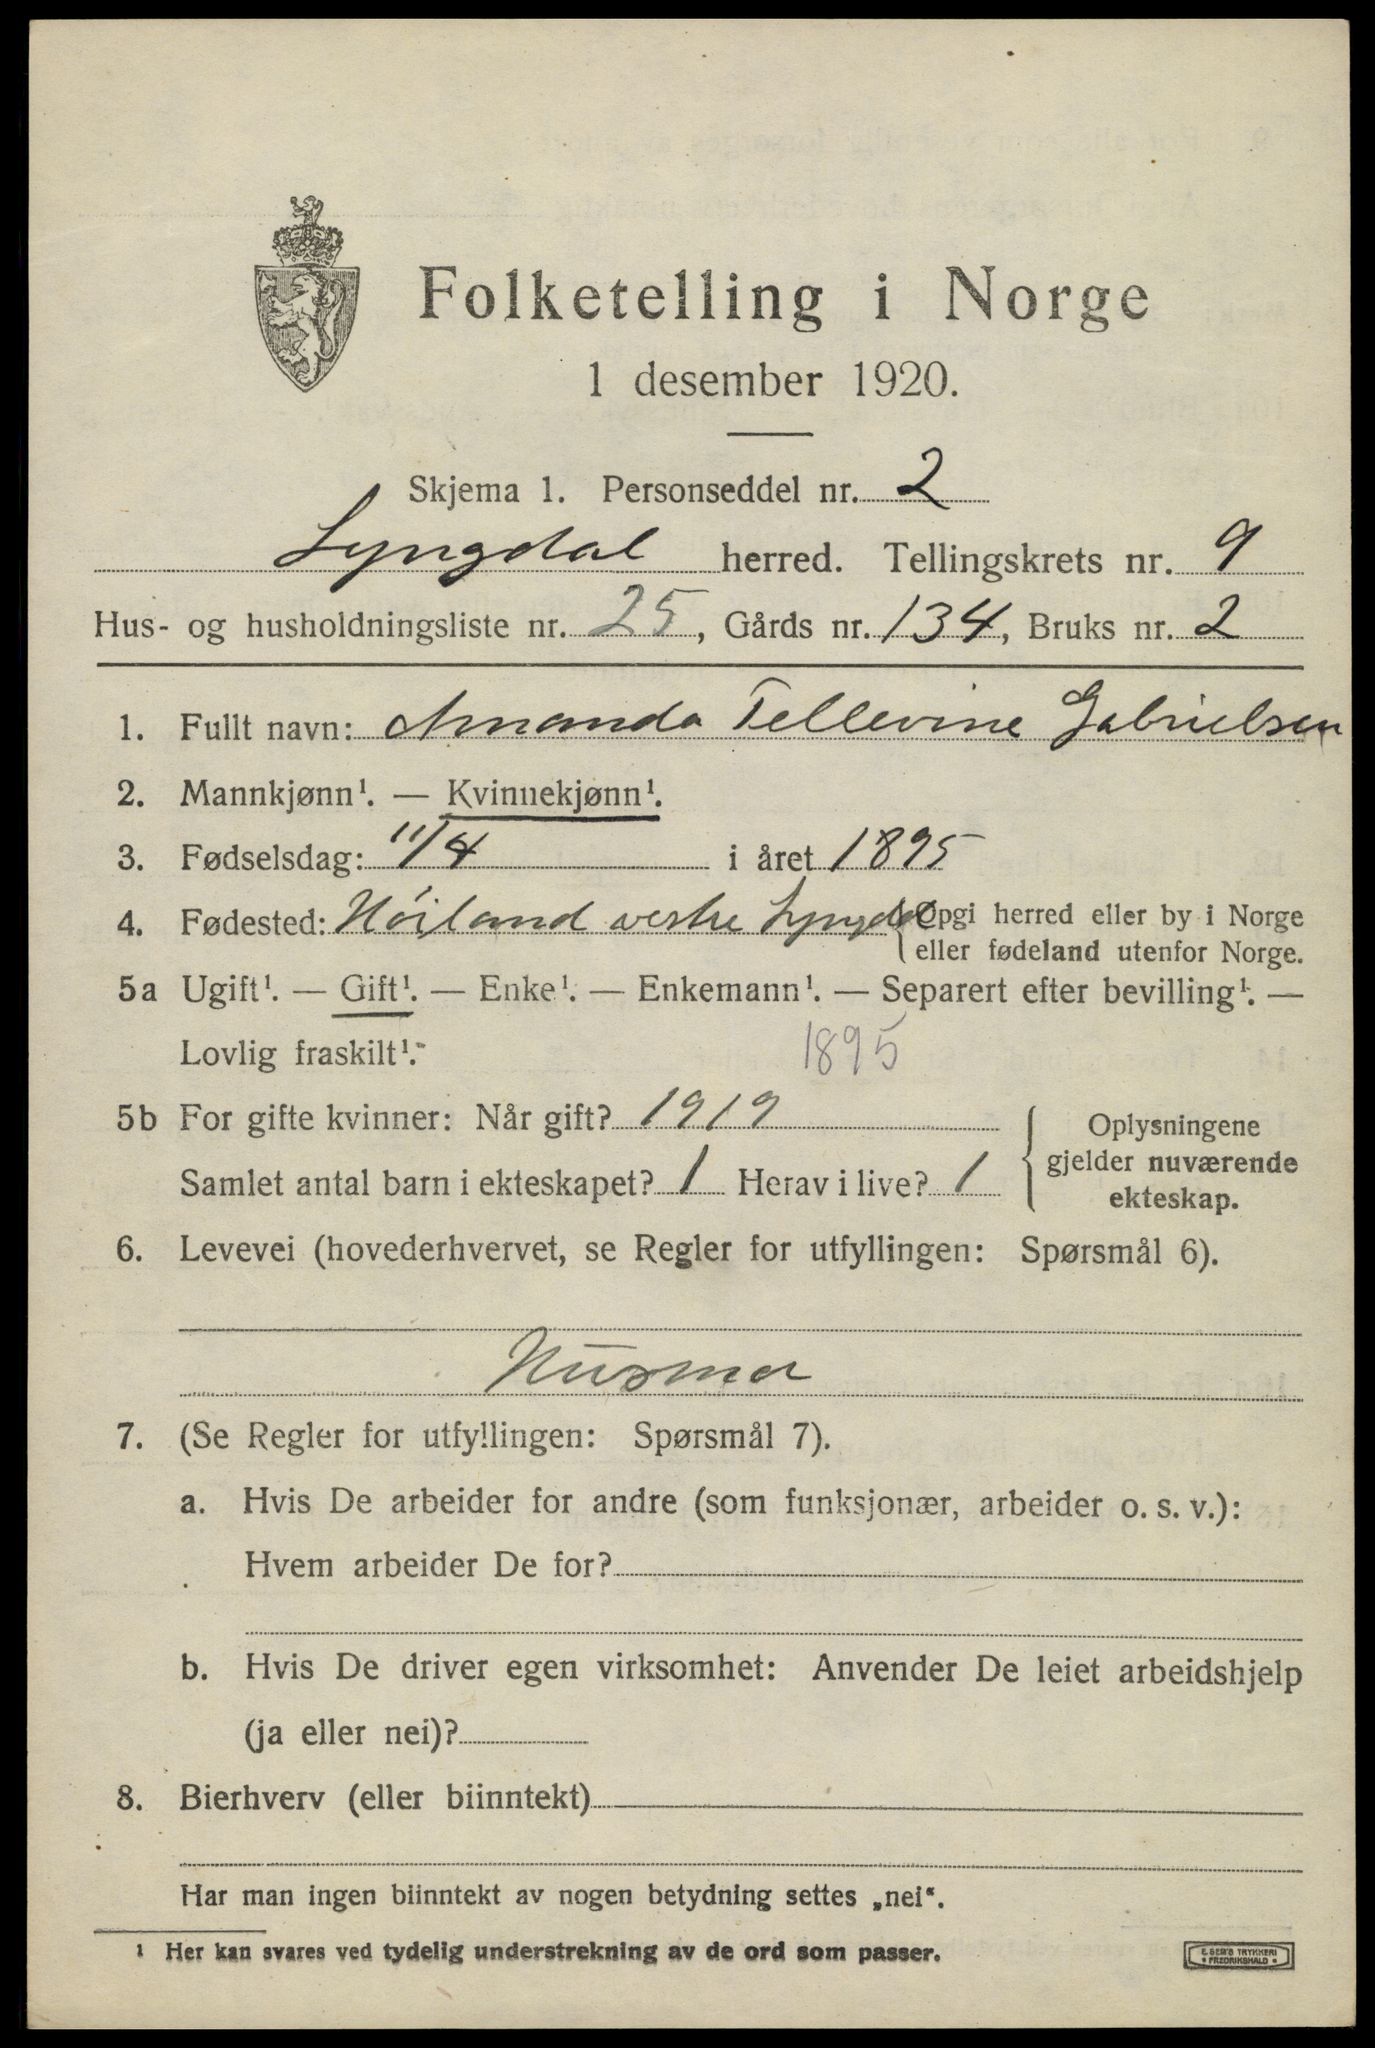 Folketelling i Norge
1 desember 1920.
Skjema 1. Personseddel nr. 2
Lyngdal herred. Tellingskrets nr. 9
Hus- og husholdningsliste nr. 25, Gårds nr. 134, Bruks nr. 2
1. Fullt navn: Amanda Tellevine Gabrielsen
2. Mannkjønn¹. — Kvinnekjønn¹.
3. Fødselsdag: 11/4 i året 1895
4. Fødested: Höiland vestre Lyngdal { Opgi herred eller by i Norge
eller fødeland utenfor Norge.
5a Ugift¹. — Gift¹. — Enke¹. — Enkemann¹. — Separert efter bevilling¹. —
Lovlig fraskilt¹. 1895
5b For gifte kvinner: Når gift? 1919
Samlet antal barn i ekteskapet? 1 Herav i live? 1
Oplysningene
gjelder nuværende
ekteskap.
6. Levevei (hovederhvervet, se Regler for utfyllingen: Spørsmål 6).
Husmor
7. (Se Regler for utfyllingen: Spørsmål 7).
a. Hvis De arbeider for andre (som funksjonær, arbeider o. s. v.):
Hvem arbeider De for?
b. Hvis De driver egen virksomhet: Anvender De leiet arbeidshjelp
(ja eller nei)?
8. Bierhverv (eller biinntekt)
Har man ingen biinntekt av nogen betydning settes „nei“.
¹ Her kan svares ved tydelig understrekning av de ord som passer.
E. SEM'S TRYKKERI
FREDRIKSHALD